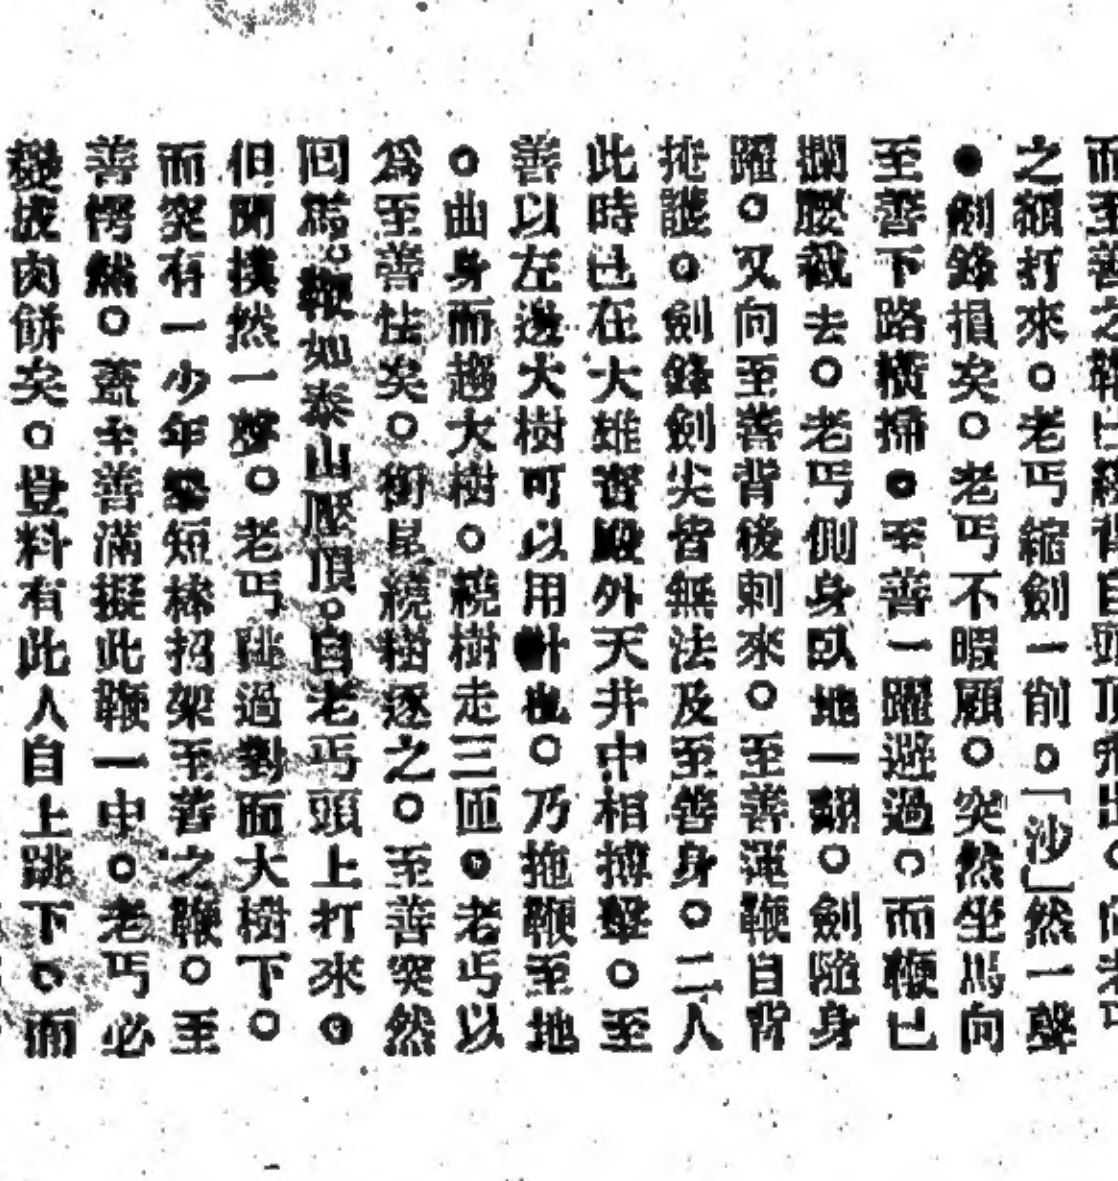 而至善之鞭
之額打來。老丐縮劍一削。「沙」然一聲
●劍鋒損矣。老丐不暇顧。突然坐馬向
至善下路橫掃。至善一躍避過。而鞭已
攔腰截去。老丐側身臥地一翻。劍隨身
躍。又向至善背後刺來。至善運鞭自背
。劍鋒劍尖皆無法及至善身。二人
此時已在大雄寶殿外天井中相搏擊。至
善以左邊大樹可以用計也。乃拖鞭至地
。曲身而趨大樹。繞樹走三匝。老丐以
為至善怯矣。銜尾繞樹逐之。至善突然
回馬。鞭如泰山壓頂。自老丐頭上打來。
但聞撲然一聲。老丐跳過對面大樹下。
而突有一少年舉短棒招架至善之鞭。至
善愕然。蓋至善滿擬此鞭一中。老丐必
變成肉餅矣。豈料有此人自上跳下。而